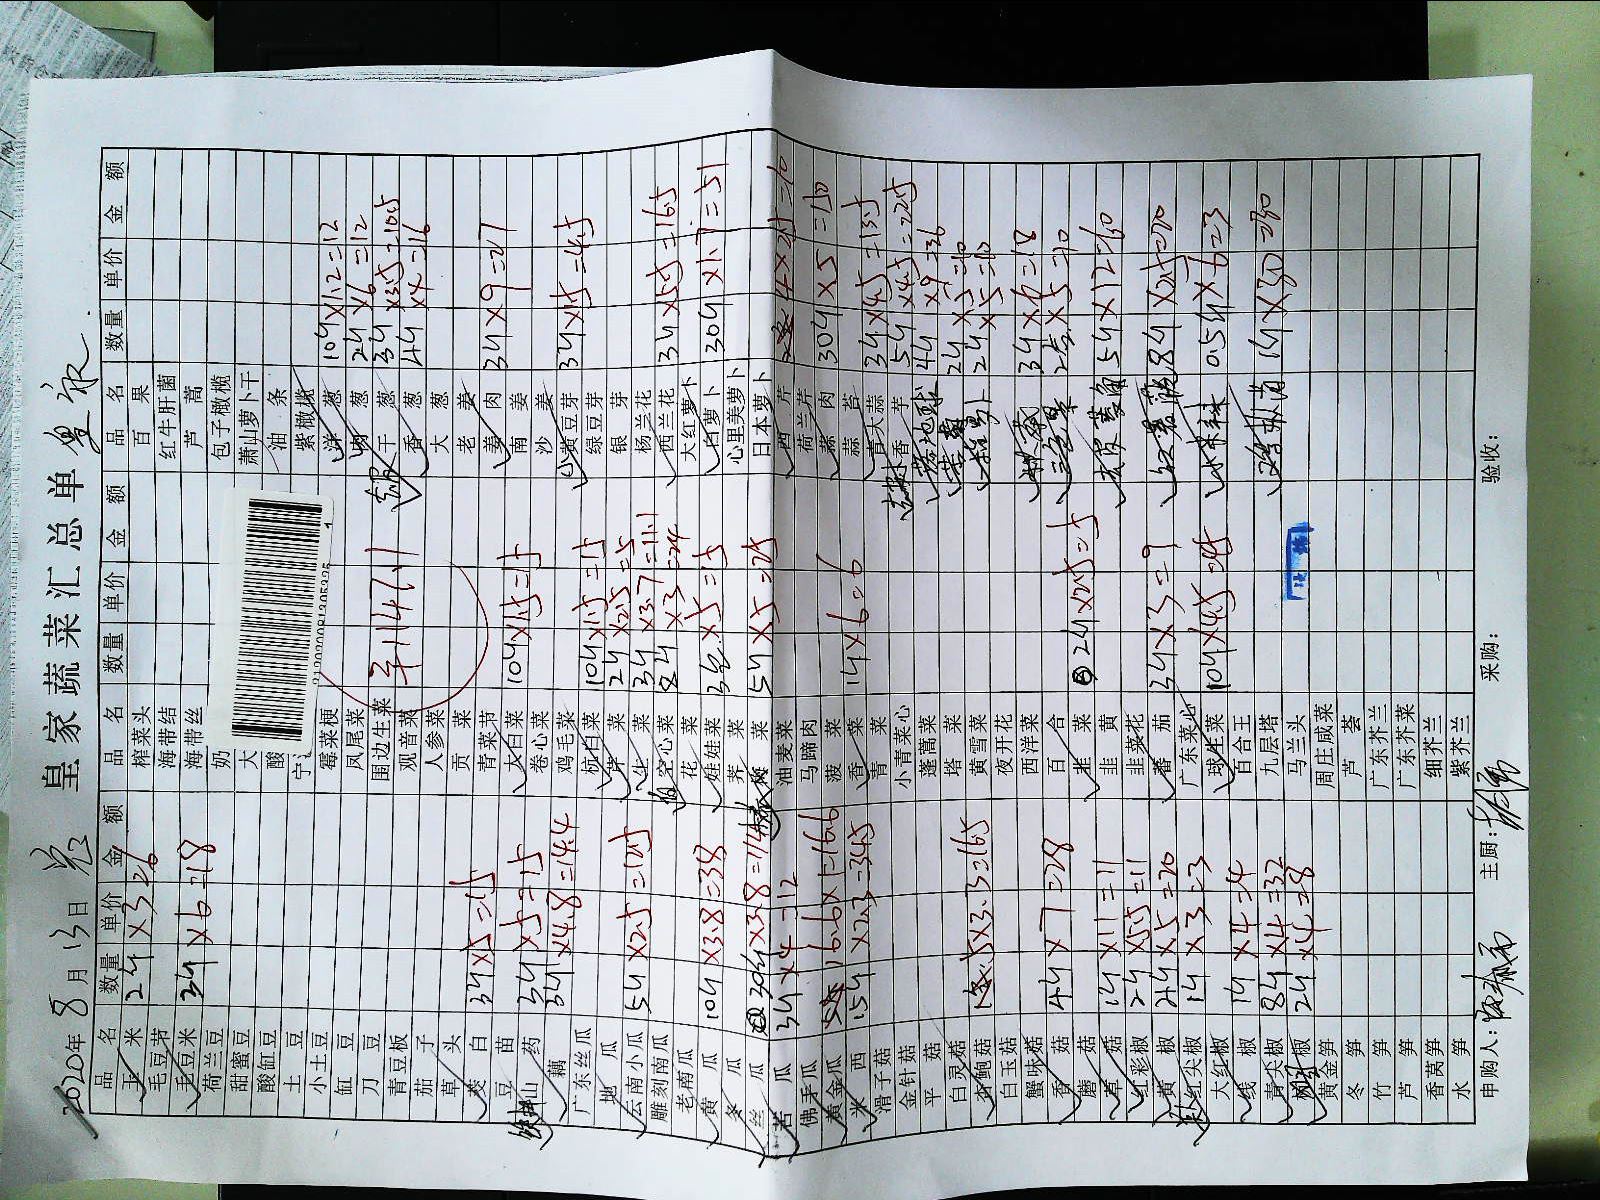 皇家蔬菜汇总单
2020年8月13日
品名 数量 单价 金额 品名 数量 单价 金额 品名 数量 单价 金额
玉米 2斤×3=6
毛豆节
毛豆米 3斤×6=18
荷兰豆
甜蜜豆
酸缸豆
土豆
小土豆
缸豆
刀豆
青豆板
茄子
草头
茭白 3斤×5=15
豆苗
铁棍山药 3斤×5=15
藕 3斤×4.8=14.4
广东丝瓜
地瓜
云南小瓜 5斤×2.5=12.5
雕刻南瓜
老南瓜
黄瓜 10斤×3.8=38
冬瓜
丝瓜 30斤×3.8=114
苦瓜 3斤×4=12
佛手瓜
黄金瓜 16.6×1=16.6
米西 15斤×2.3=34.5
滑子菇
金针菇
平菇
白灵菇
杏鲍菇 5×3.3=16.5
白玉菇
蟹味菇
香菇 4斤×7=28
蘑菇
草菇 1斤×11=11
红彩椒 2斤×5.5=11
黄椒 4斤×5=20
红尖椒 1斤×3=3
大红椒
线椒 1斤×4=4
青尖椒 8斤×4=32
椒 2斤×4=8
黄金笋
冬笋
竹笋
芦笋
香莴笋
水笋
榨菜头
海带结
海带丝
奶
大
酸
宁
霉菜梗
凤尾菜
围边生菜
观音菜
人参菜
贡菜
青菜节
大白菜 10斤×1.5=15
卷心菜
鸡毛菜
杭白菜 10斤×1.5=15
芹菜 2斤×2.5=5
生菜 3斤×3.7=11.1
空心菜 8斤×3=24
花菜
娃娃菜 3×5=15
荠菜
菜 5斤×5=25
油麦菜
马蹄肉
菠菜
香菜 1斤×6=6
青菜
小青菜心
蓬蒿菜
塔菜
黄雪菜
夜开花
西洋菜
百合
韭菜 2斤×2.5=5
韭黄
韭菜花
番茄 3斤×3=9
广东菜心
球生菜 10斤×4.5=45
百合王
九层塔
马兰头
周庄咸菜
芦荟
广东芥兰
广东芥菜
细芥兰
紫芥兰
百果
红牛肝菌
芦蒿
包子橄榄
萧山萝卜干
油条
紫橄榄
洋葱 10斤×1.2=12
葱 2斤×6=12
干葱 3斤×3.5=10.5
香葱 4斤×4=16
大葱
老姜
姜肉 3斤×9=27
南姜
沙姜
黄豆芽 3斤×1.5=4.5
绿豆芽
银芽
杨兰花
西兰花 3斤×5.5=16.5
大红萝卜
白萝卜 30斤×1.7=51
心里美萝卜
日本萝卜
西芹 4×2.5=10
荷兰芹
蒜肉 30斤×5=150
蒜苔
青大蒜 3斤×4.5=13.5
香芋 5斤×4.5=22.5
4斤×9=36
2斤×5=10
2斤×5=10
3斤×6=18
2×5=10
5斤×12=60
8斤×2.5=20
0.5斤×6=3
1斤×30=30
申购人:
主厨:
采购:
验收: